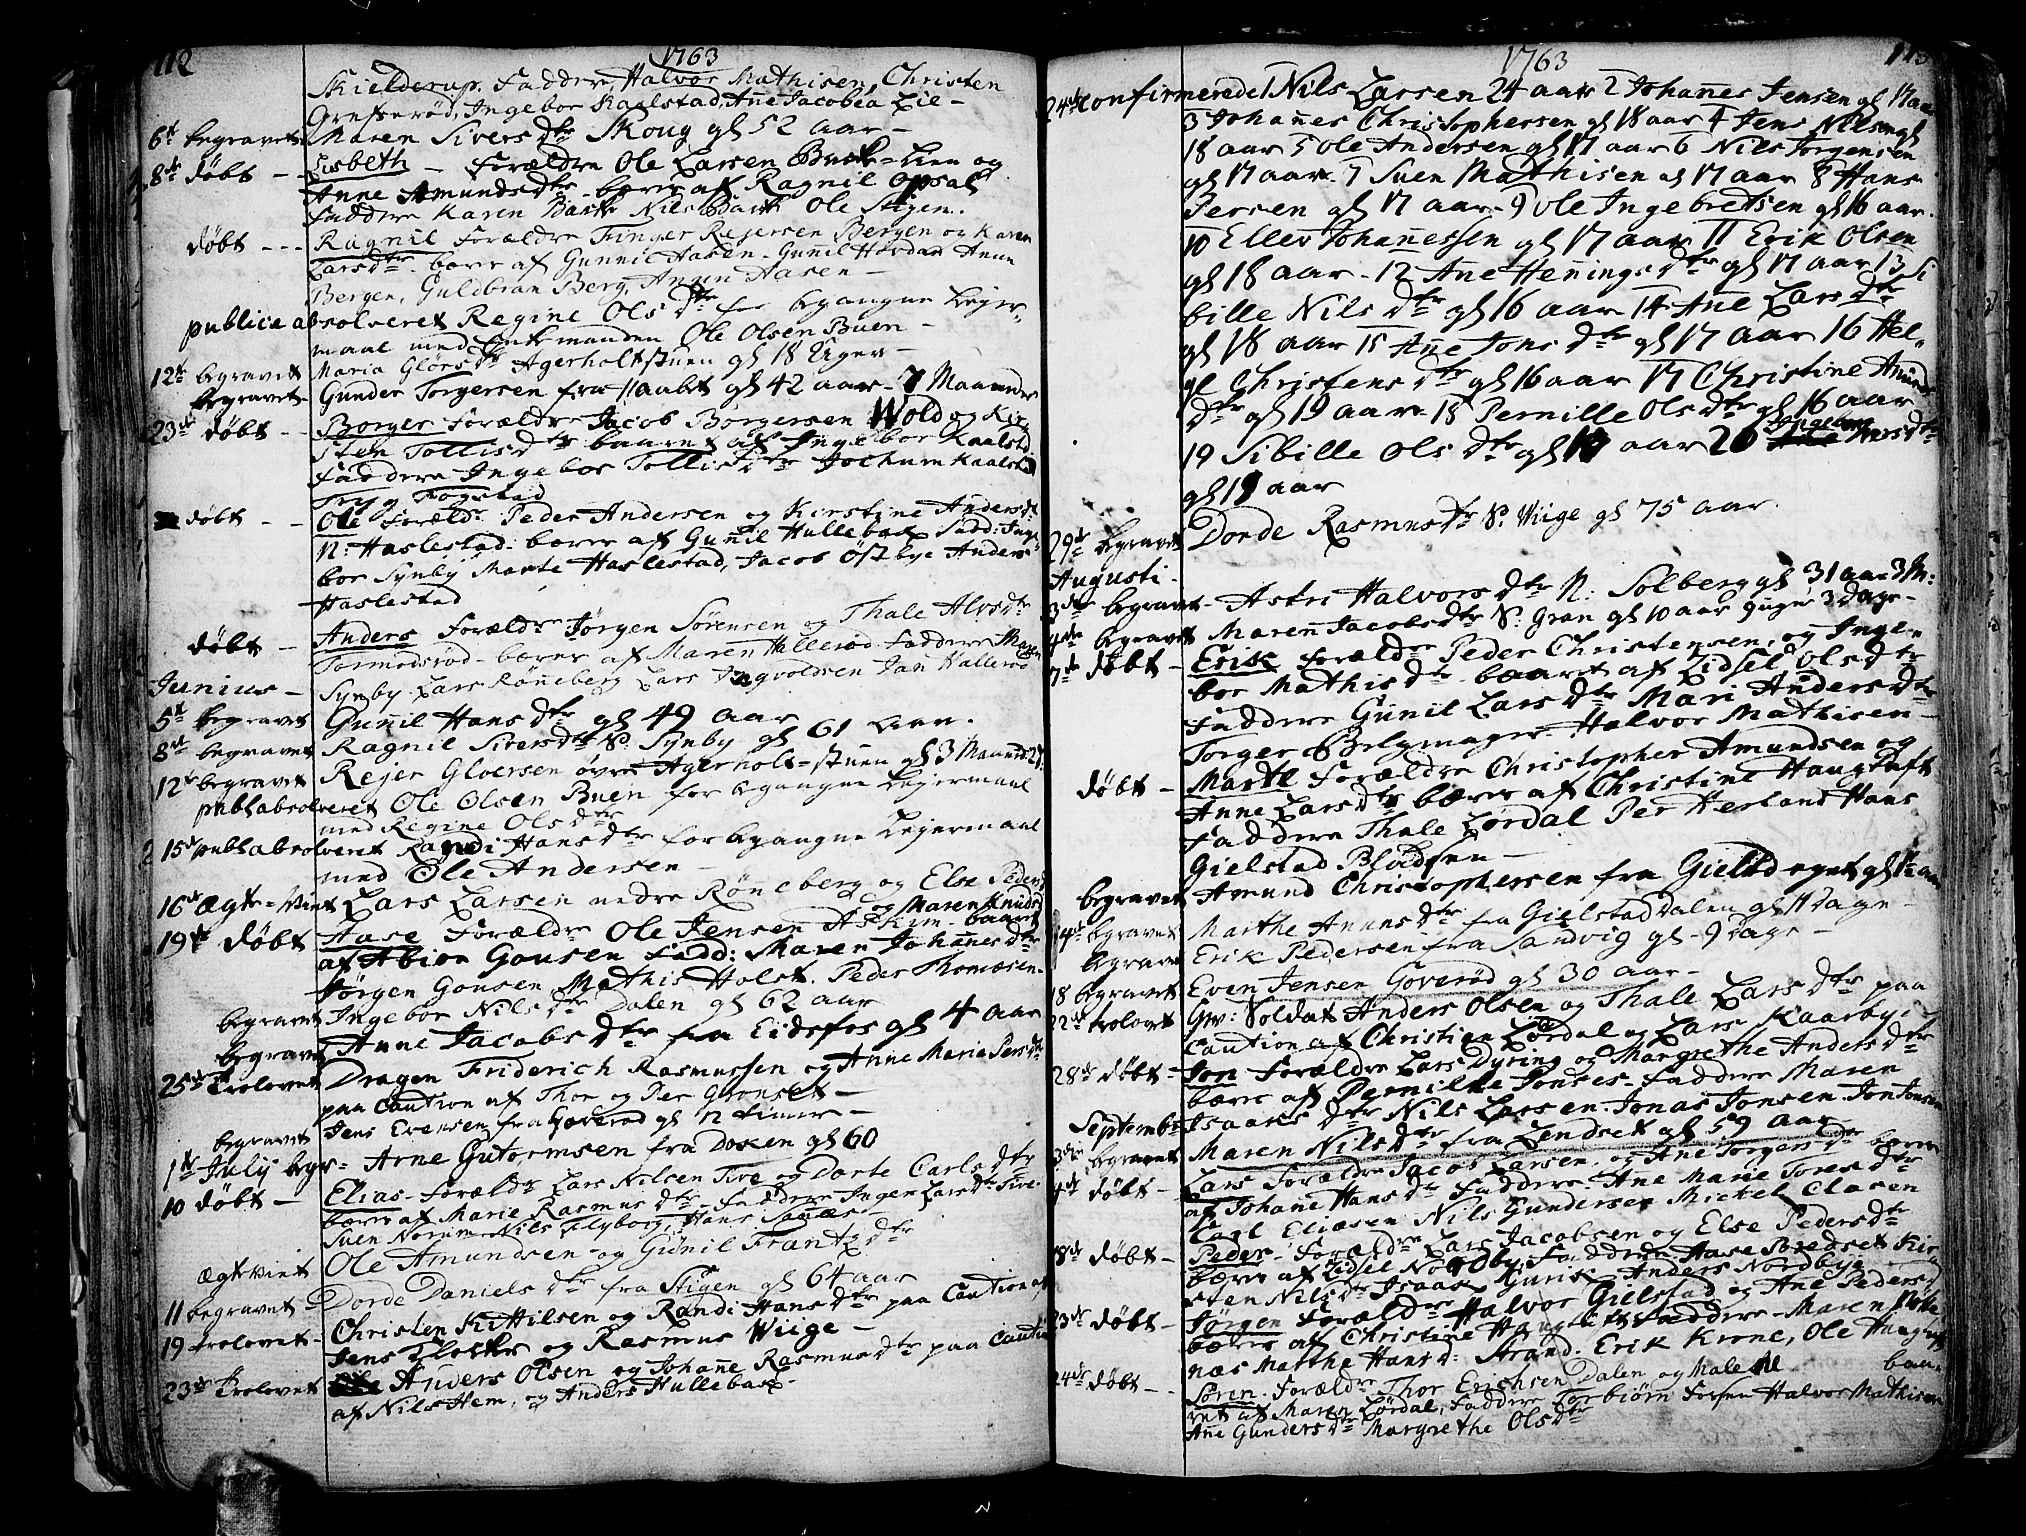 112
1763
Skielderup. Faddere Halvor Mathisen, Christen
Grefserød, Ingebor Kaalstad, Añe Jacobea Lie -
6t begravet Maren Sivers dtr Skoug gl 52 aar -
8de døbt - Lisbeth - Forældre Ole Larsen Lien og
Anne Amunds dtr bæres af Ragnil Opsal
Faddere Karen Nils Ole Stigen.
døbt - - - Ragnil Forældre Finger Rejersen Bergen og Karen
Lars dtr. bæres af Gunnil Aasen - Guñil
Bergen, Guldbran Berg, Aasen -
publice absolveret Regine Ols dtr for begangne Lejer-
maal med Enkemanden Ole Olsen Buen -
12te begravet Maria Glørs dtr Agerholtstuen gl 18 Uger -
begravet Gunder Torgersen fra gl 42 aar - 7 Maaneder
23de døbt - Borger Forældre Jacob Børgersen Wold og Kir-
sten Tollis dtr baaret af Ingebor Kaalstd
Faddere Ingebor Tollis dtr Jochum Kaalstad
Fogstad
døbt - - Ole Foræld: Peder Andersen og Kirstine Anders dtr
N: Haslestad: bæres af Guñil Hullebak Fadd: Inge-
bor Synby Marte Haslestad, Jacob Østbye Anders
Haslestad
døbt - Anders Forældre Jørgen Sørensen og Thale Alvs dtr
Tormodsrød - bæres af Maren Hallerød Faddere Maren
Junius - Synby Lars Røñeberg Lars Ingvoldsen Jan Hallerød
5t begravet Guñil Hans dtr gl 49 aar
8de begravet Ragnil Sivers dtr S: Synby gl 61 Aar.
12te begravet Rejer Gloersen øvre Agerholt=stuen gl 3 Maaned
publ absolveret Ole Olsen Buen for begangne Lejermaal
med Regine Ols dtr
15de publ absolveret Randi Hans dtr for begangne Lejermaal
med Ole Andersen -
16de Ægte=Viet Lars Larsen nedre Røñeberg og Else Peders
19te døbt Aase Forældre Ole Jensen Askim og Maren Knuds dtr baaret
af Abion Gousen Fadd: Maren Johañes dtr
Jørgen Gousen Mathis Holst. Peder Thomæsen -
begravet Ingebor Nils dtr Dalen gl 62 aar
begravet Anne Jacobs dtr fra Eidsfos gl 4 aar
25de trolovet Dragon Friderich Rasmussen og Anne Marie Pers dtr
paa Caution af Thor og Per Gronset -
begravet Jens Evensen fra Goverød gl 12 timer -
1te July begr= Arne Gutormsen fra Dosen gl 60
10 døbt - Elias - Forældr Lars Nilsen Tive og Dorte Carls dtr
bæres af Marie Rasmus dtr - Faddere Ingen Lars dtr
Suen Norum Nils Flyborg, Hans
Ægteviet Ole Amundsen og Guñil Frantz dtr
11 begravet - Dorde Daniels dtr fra Stigen gl 64 aar
19 trolovet - Christen Kittilsen og Randi Hans dtr paa Caution af
Jens og Rasmus Wiige -
23de trolovet Anders Olsen og Johañe Rasmus dtr paa Caution
af Nils Hem, og Anders Hullebak.
1763
113
24de confirmerede 1 Nils Larsen 24 aar 2 Johañes Jensen gl 17 aar
3 Johañes Christophersen gl 18 aar 4 Jens Nilsen gl
18 aar 5 Ole Andersen gl 17 aar 6 Nils Jørgensen
gl 17 aar - 7 Suen Mathisen al 17 aar 8 Hans
Persen gl 17 aar - 9 Ole Ingebretsen gl 16 aar.
10 Ellev Johañessen gl 17 aar 11 Erik Olsen
gl 18 aar - 12 Añe Heñings dtr gl 17 aar 13 Si
bille Nils dtr gl 16 aar 14 Añe Lars dtr
gl 18 aar 15 Añe Jons dtr gl 17 aar 16 Hel-
ge Christens dtr gl 16 aar 17 Christine Amunds
dtr gl 19 aar 18 Pernille Ols dtr gl 16 aar
19 Sibille Ols dtr gl 17 aar 20 Ingebor dtr
gl 19 aar
29de begravet Dorde Rasmus dtr S: Wiige gl 75 aar.
Augusti -
3de begravet - Astri Halvors dtr N: Solberg gl 31 aar 3 M:
4de begravet Maren Jacobs dtr S: Gran gl 10 aar 9 uger 3 dage -
7de døbt - Erik Forældre Peder Christensen, og Inge-
bor Mathis dtr bæret af Zidsel Ols dtr
Faddere Guñil Lars dtr Mari Anders dtr
Torger Belgmager Halvor Mathisen -
døbt - Marte Forældre Christopher Amundsen og
Anne Lars dtr bæres af Christine Haugtuft
Faddere Thale Lørdal Per Herland Hans
Gielstad Bløden -
begravet Amund Christophersen fra Gielstd eyet gl 1½ aar
14de begravet Marthe Añuns dtr fra Gielstad Dalen gl 11 Dage -
begravet Erik Pedersen fra Sandvig gl - 9 Dage -
18 begravet Even Jensen Goverød gl 30 aar -
22de trolovet Gev: Soldat Anders Olsen og Thale Lars dtr paa
Caution af Christien Lørdal og Lars Kaarby -
28de døbt - Jon Forældre Lars Dyring og Margrethe Anders dtr
bæres af Pernille Jonses - Faddere Maren
Septembr Isaaks dtr Nils Larsen. Jonas Jonsen Jon Jonsen
3de begravet Maren Nils dtr fra Lundset gl 59 aar
4de døbt - Lars Forældre Jacob Larsen. og Añe Torgers dtr bæres
af Johañe Hans dtr Faddere Ane Marie Tores dtr
Carl Eliæsen Nils Gundersen Mickel Clasen
18de døbt - Peder - Forældre Lars Jacobsen og Else Peders dtr
bæres af Zidsel Nordby Faddere Aase Kir-
sten Nils dtr Isaak Anders Nordbye
23de døbt - Jørgen Forældre Halvor Gielstad og Ane Peders d
bæres af Christine Haugtuft Faddere - Maren
næs Marthe Hans d: Strand. Erik Krone, Ole Haugtuft
24de døbt - - Sørin - Forældre Thor Erichsen Dalen og baa-
ret af Maren Lørdal, Faddere Torbiørn Halvor Mathisen
Añe Gunders dtr Margrethe Ols dtr